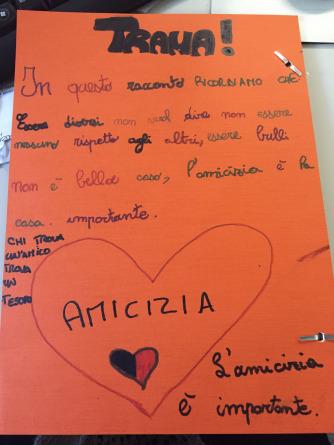 TRAMA!
In questo racconto RICORDIAMO CHE
Essere diversi non vuol dire non essere
nessuno rispetto agli altri, essere bulli
non è bella cosa, l'amicizia è la
cosa importante.
CHI TROVA
UN'AMICO
TROVA
UN
TESORO
AMICIZIA
L'amicizia
è importante.